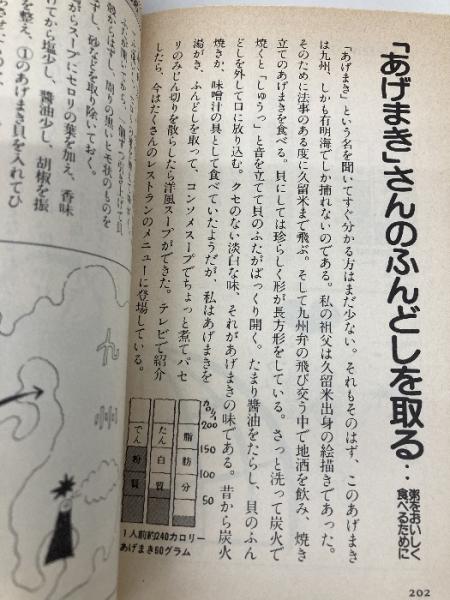 「あげまき」さんのふんどしを取る‥
粥をおいしく
食べるために
「あげまき」という名を聞いてすぐ分かる方はまだ少ない。それもそのはず、このあげまき
は九州、しかも有明海でしか捕れないのである。私の祖父は久留米出身の絵描きであった。
そのために法事のある度に久留米まで飛ぶ。そして九州弁の飛び交う中で地酒を飲み、焼き
立てのあげまきを食べる。貝にしては珍らしく形が長方形をしている。さっと洗って炭火で
焼くと「しゅうっ」と音を立てて貝のふたがぱっくり開く。たまり醬油をたらし、貝のふん
どしを外して口に放り込む。クセのない淡白な味、それがあげまきの味である。昔から炭火
焼きか、味噌汁の具として食べていたようだが、私はあげまきを
湯がき、ふんどしを取って、コンソメスープでちょっと煮てパセ
リのみじん切りを散らしたら洋風スープができた。テレビで紹介
したら、今はたくさんのレストランのメニューに登場している。
カロリー
200
150
100
50
脂肪分
たん白質
でん粉質
1人前約240カロリー
あげまき60グラム
202
殻からはずし、周りの黒いヒモ状のものを
す、砂などを取り除いておく。
がらスープにセロリの葉を加え、香味
てから塩少し、醬油少し、胡椒を振
を整え、①のあげまき貝を入れてひ